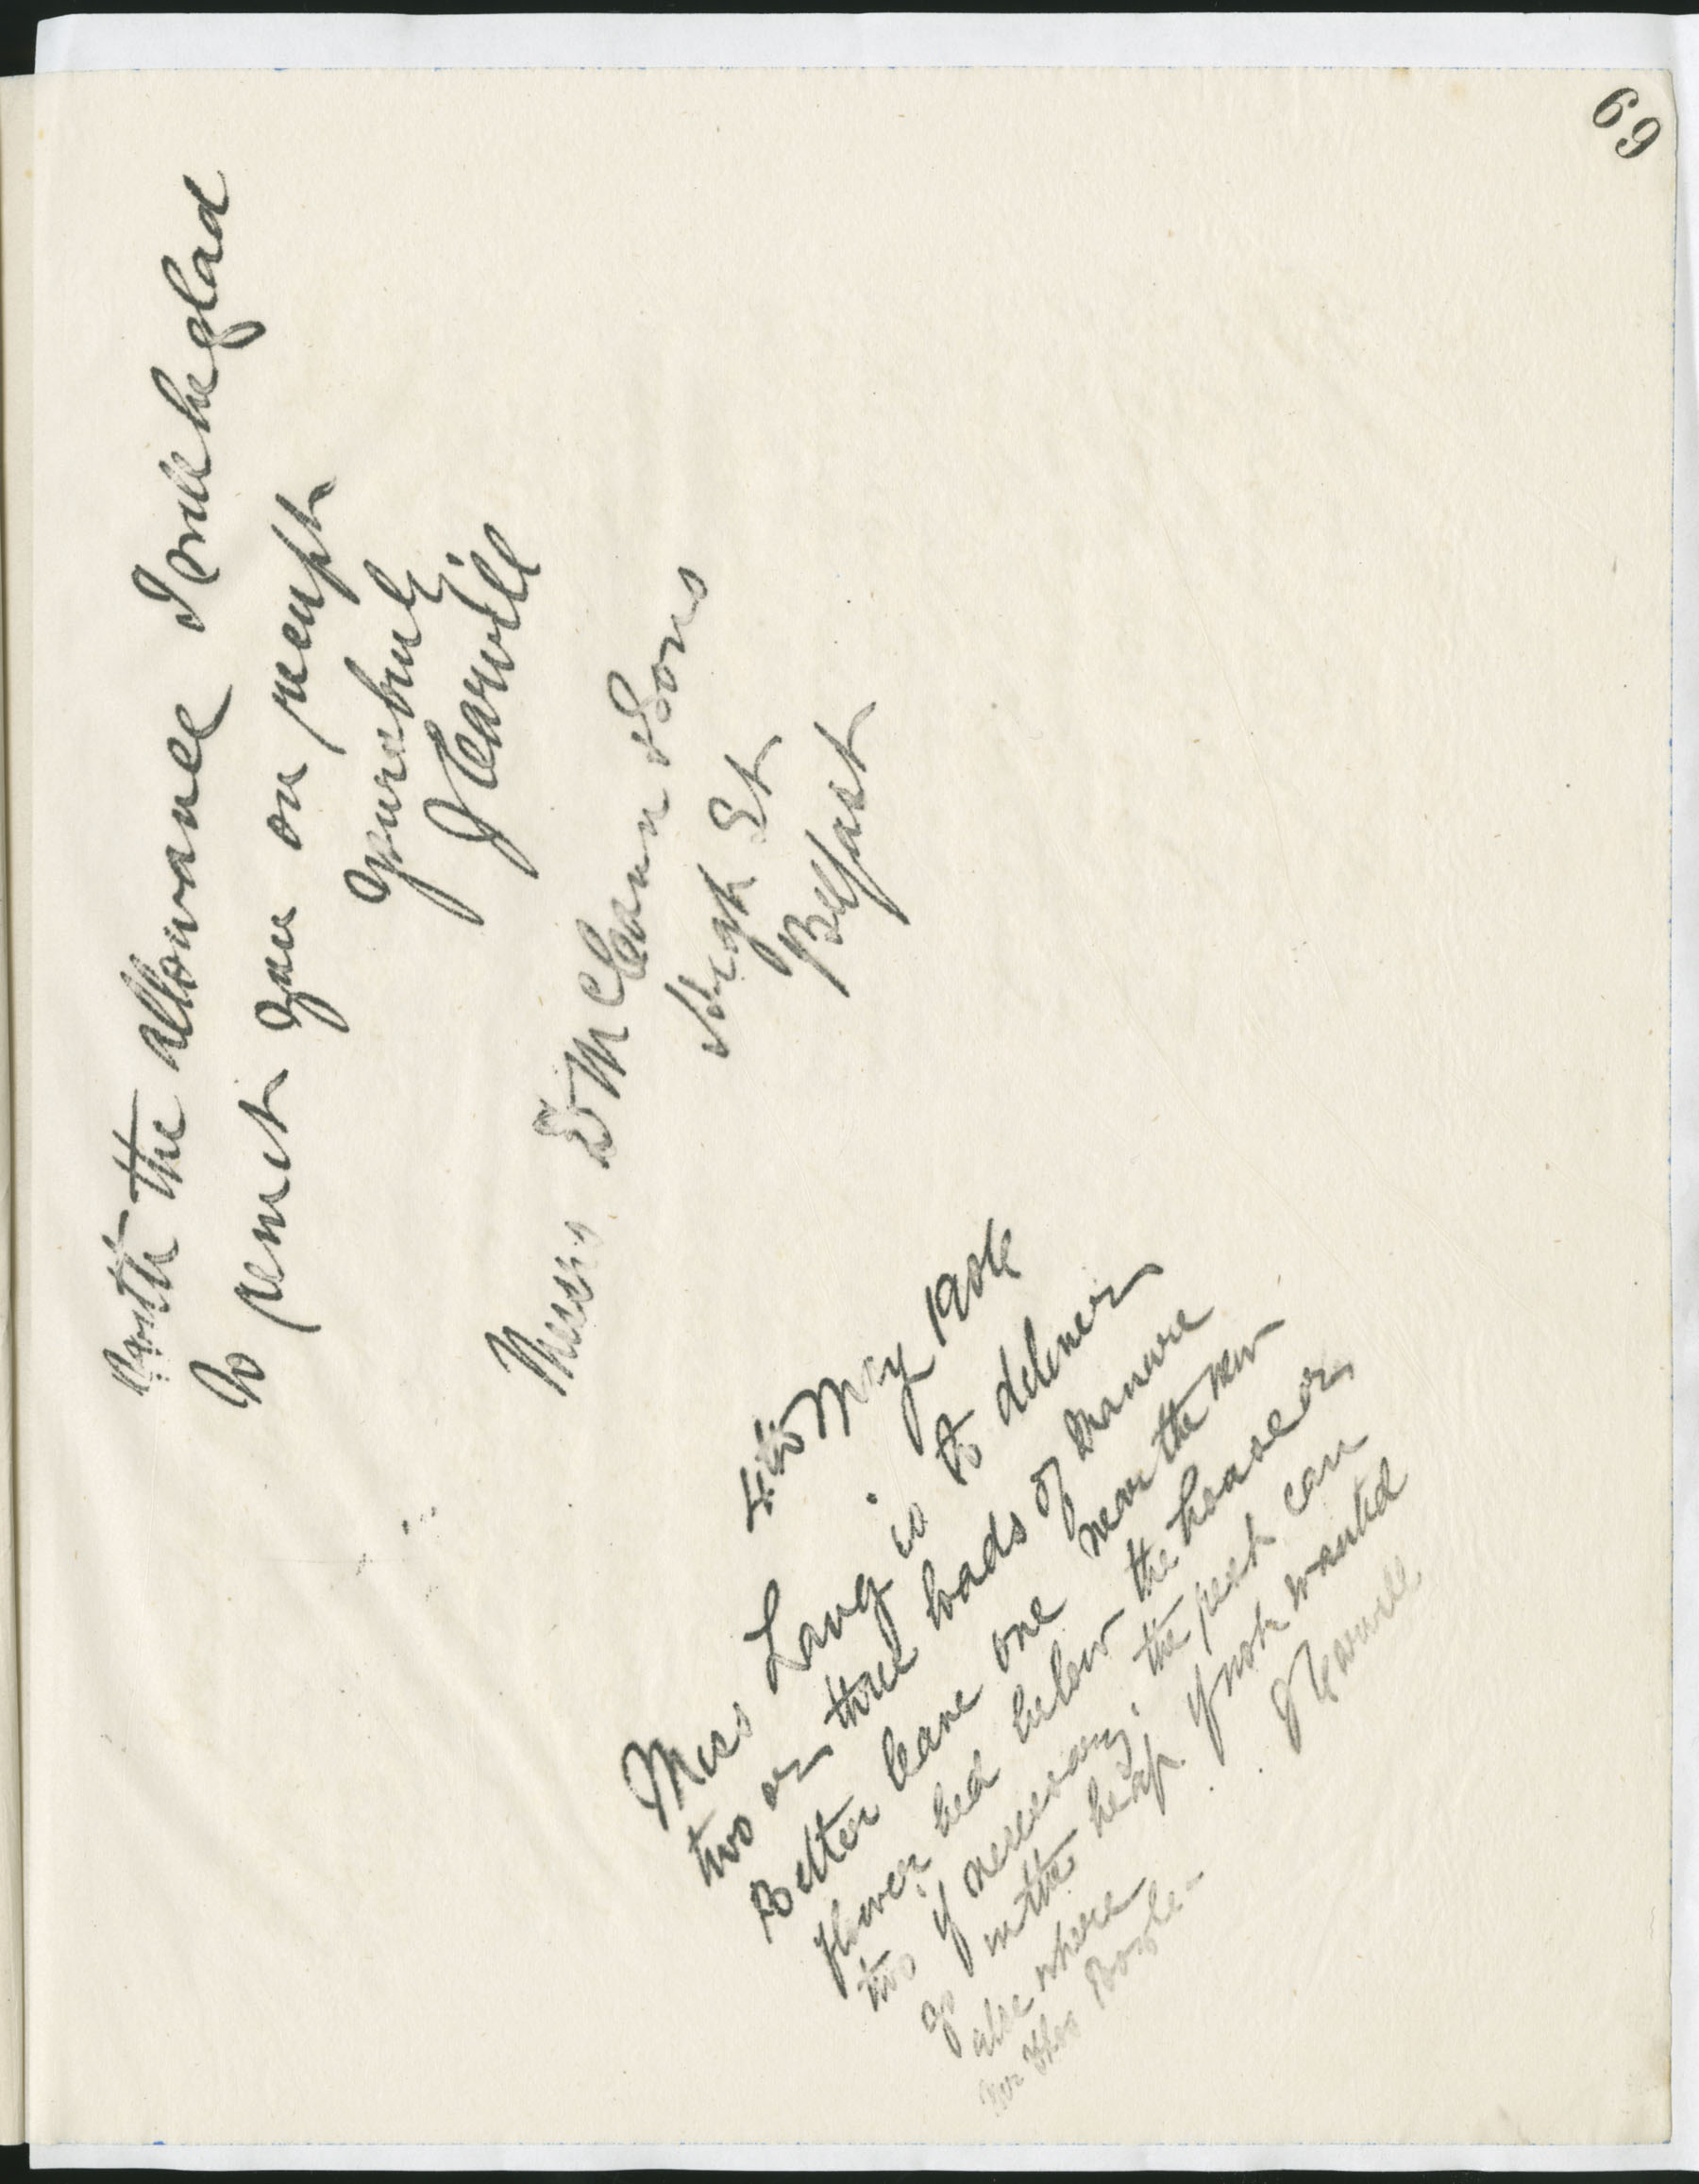 69
with the allowance I will be glad
to remit you on receipt
yours truly
J Carvill
Messrs D McClean & Sons
High St
Belfast
4th May 190
Miss Lang is to deliver
two or three loads of manure
Better leave one near the new
flower bed below the house or
two if necessary, the rest can
go in the heap if not wanted
else where
J Carvill
Thos Bogle